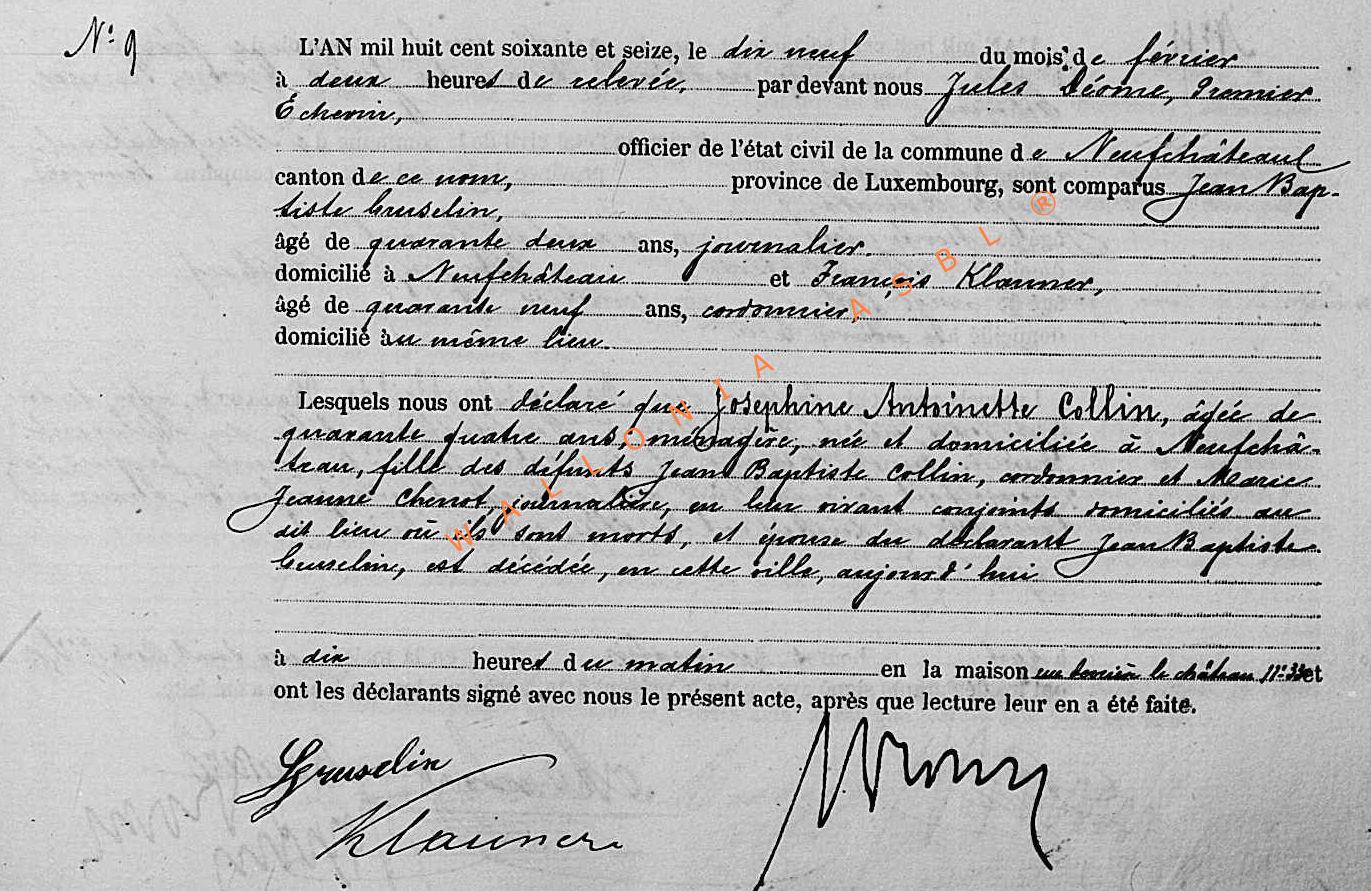 N° 9
L'AN mil huit cent soixante et seize, le dix neuf du mois de février
à deux heures de relevée, par devant nous Jules Déome, Premier
Echevin,
officier de l'état civil de la commune de Neufchâteau
canton de ce nom, province de Luxembourg, sont comparus Jean Bap-
tiste Gruselin,
âgé de quarante deux ans, journalier.
domicilié à Neufchâteau et François Klauner,
âgé de quarante neuf ans, cordonnier,
domicilié au même lieu.
Lesquels nous ont déclaré que Joséphine Antoinette Collin, âgée de
quarante quatre ans, ménagère, née et domiciliée à Neufchâ-
teau, fille des défunts Jean Baptiste Collin, cordonnier et Marie
Jeanne Chenot, journalière, en leur vivant conjoints domiciliés au
dit lieu où ils sont morts, et épouse du déclarant Jean Baptiste
Gruselin, est décédée, en cette ville, aujourd'hui
à dix heures du matin en la maison le château n° 33 et
ont les déclarants signé avec nous le présent acte, après que lecture leur en a été faite.
Gruselin
Klauner
WALLONIA ASBL ®